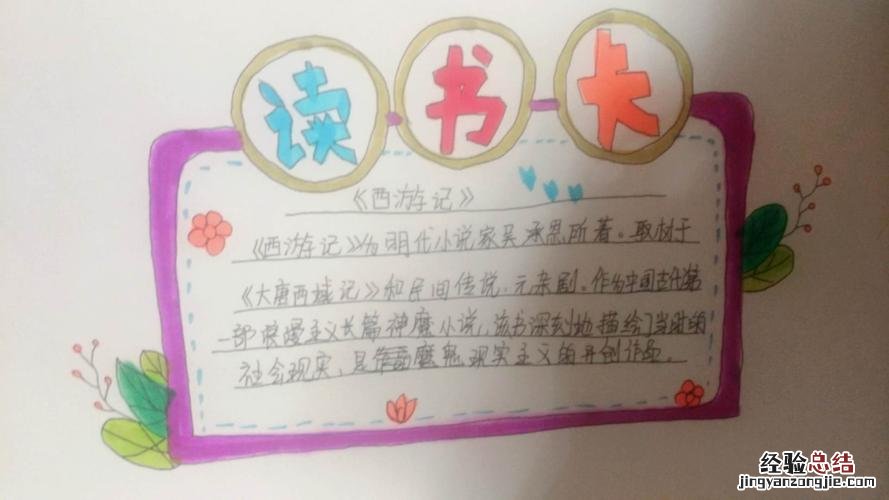 读书卡
《西游记》
《西游记》为明代小说家吴承恩所著。取材于
《大唐西域记》和民间传说、元杂剧。作为中国古代第
一部浪漫主义长篇神魔小说，该书深刻地描绘了当时的
社会现实，是魔魔现实主义的开创作品。
经验总结
jingyanzongjie.com